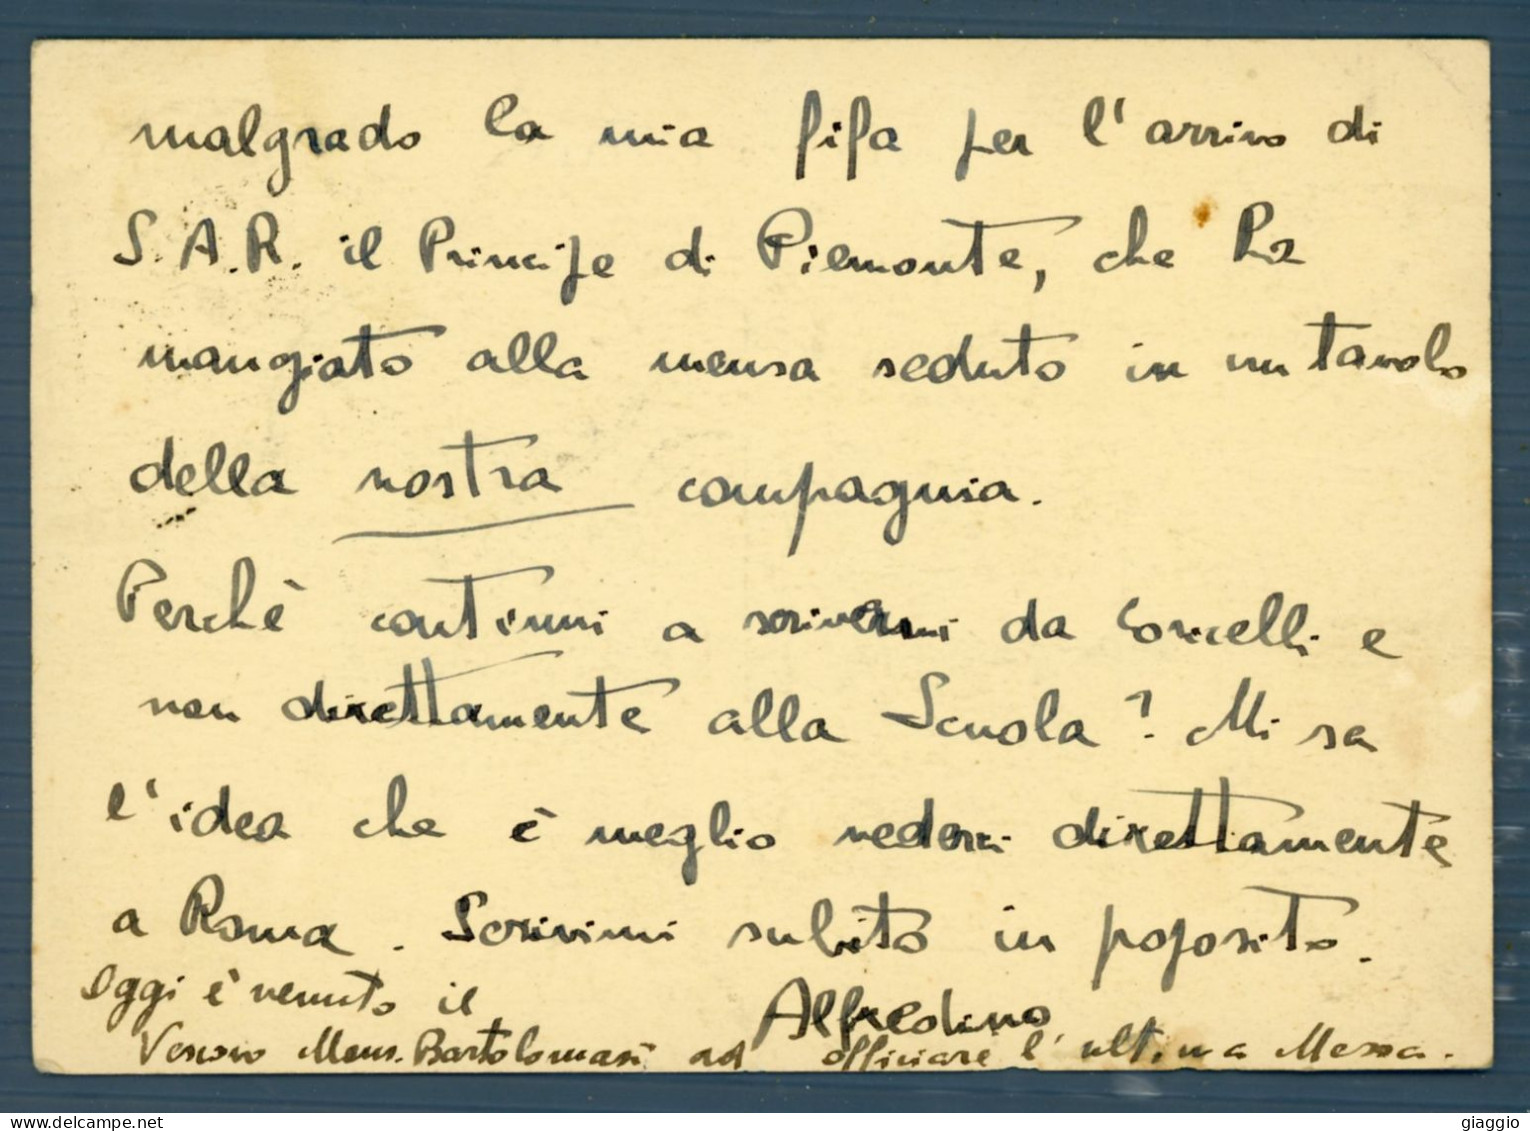 malgrado la mia fifa per l'arrivo di
S.A.R. il Principe di Piemonte, che ha
mangiato alla mensa seduto in un tavolo
della nostra compagnia.
Perchè continui a scrivermi da e
non direttamente alla Scuola? Mi sa
l'idea che è meglio vederci direttamente
a Roma. Scrivimi subito in poposito.
Alfredino
Oggi è venuto il
Vescovo Mons. Bartolomasi ad officiare l'ultima Messa.
giaggio